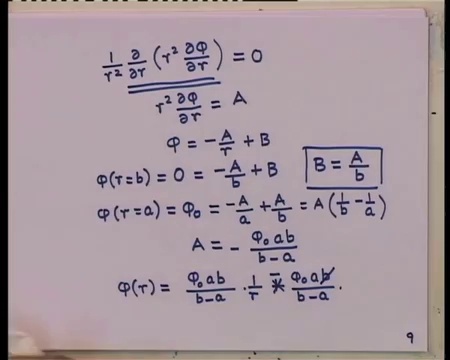 1/r² ∂/∂r (r² ∂φ/∂r) = 0
r² ∂φ/∂r = A
φ = -A/r + B
φ(r=b) = 0 = -A/b + B
B = A/b
φ(r=a) = φ₀ = -A/a + A/b = A(1/b - 1/a)
A = - φ₀ab/b-a
φ(r) = φ₀ab/b-a · 1/r - φ₀ab/b-a .
9